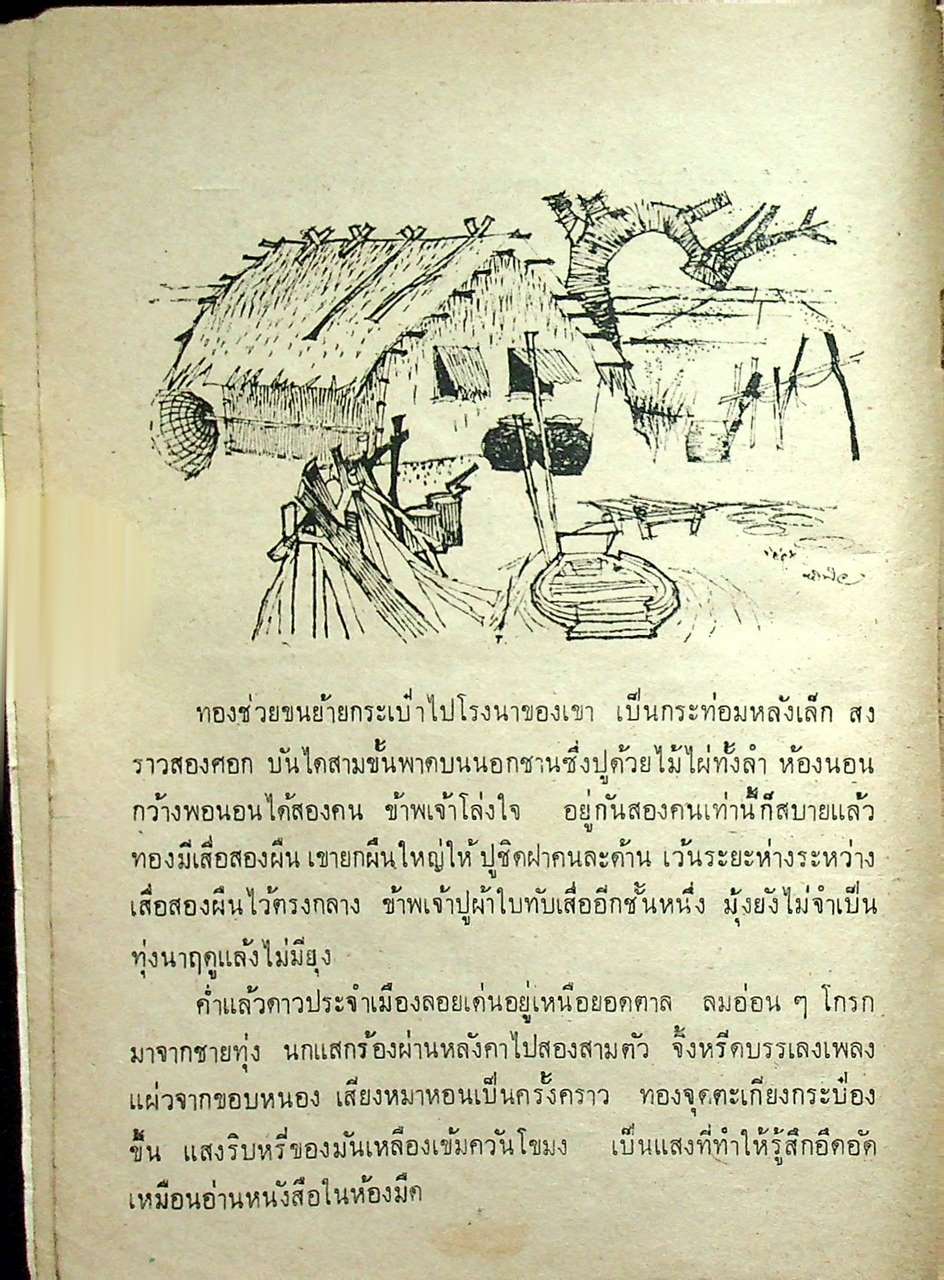 ทองช่วยขนย้ายกระเป๋าไปโรงนาของเขา เป็นกระท่อมหลังเล็ก สูง
ราวสองศอก บันไดสามขั้นพาดบนนอกชานซึ่งปูด้วยไม้ไผ่ทั้งลำ ห้องนอน
กว้างพอนอนได้สองคน ข้าพเจ้าโล่งใจ อยู่กันสองคนเท่านี้ก็สบายแล้ว
ทองมีเสื่อสองผืน เขายกผืนใหญ่ให้ ปูชิดฝาคนละด้าน เว้นระยะห่างระหว่าง
เสื่อสองผืนไว้ตรงกลาง ข้าพเจ้าปูผ้าใบทับเสื่ออีกชั้นหนึ่ง มุ้งยังไม่จำเป็น
ทุ่งนาฤดูแล้งไม่มียุง
ค่ำแล้วดาวประจำเมืองลอยเด่นอยู่เหนือยอดตาล ลมอ่อน ๆ โกรก
มาจากชายทุ่ง นกแสกร้องผ่านหลังคาไปสองสามตัว จิ้งหรีดบรรเลงเพลง
แผ่วจากขอบหนอง เสียงหมาหอนเป็นครั้งคราว ทองจุดตะเกียงกระป๋อง
ขึ้น แสงริบหรี่ของมันเหลืองเข้มควันโขมง เป็นแสงที่ทำให้รู้สึกอึดอัด
เหมือนอ่านหนังสือในห้องมืด